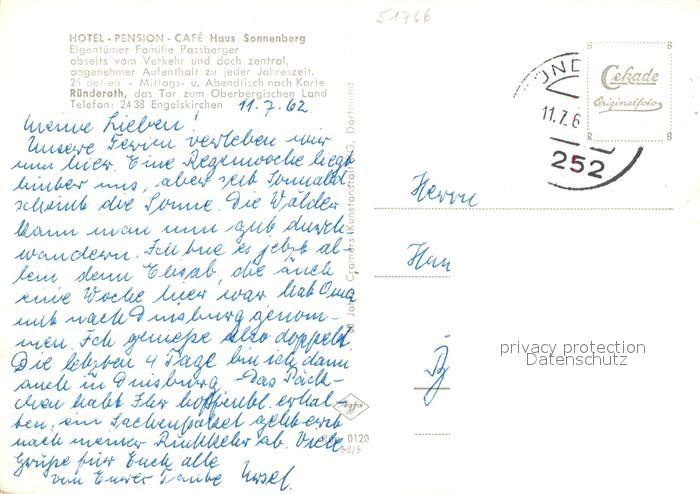 51766
HOTEL - PENSION - CAFÉ Haus Sonnenberg
Eigentümer Familie Passberger
abseits vom Verkehr und doch zentral,
angenehmer Aufenthalt zu jeder Jahreszeit.
25 Betten - Mittags- u. Abendtisch nach Karte
Ründeroth, das Tor zum Oberbergischen Land
Telefon: 24 38 Engelskirchen 11.7.62
Meine Lieben!
Unsere Ferien verleben wir
nun hier. Eine Regenwoche liegt
hinter uns, aber seit Sonnabd.
scheint die Sonne. Die Wälder
kann man nun gut durch-
wandern. Ich tue es jetzt al-
lein denn Elisab, die auch
eine Woche hier war hat Oma
mit nach Duisburg genom-
men. Ich genieße also doppelt.
Die letzten 4 Tage bin ich dann
auch in Duisburg - Das Päck-
chen habt Ihr hoffentl. erhal-
ten, ein Sachenpaket geht erst
nach meiner Rückkehr ab. Viele
Grüße für Euch alle
von Eurer Taube Ursel.
Cramers Kunstanstalt KG, Dortmund
0120
62/5
Cekade
Originalfoto
11.7.6
252
Herrn
Han
privacy protection
Datenschutz